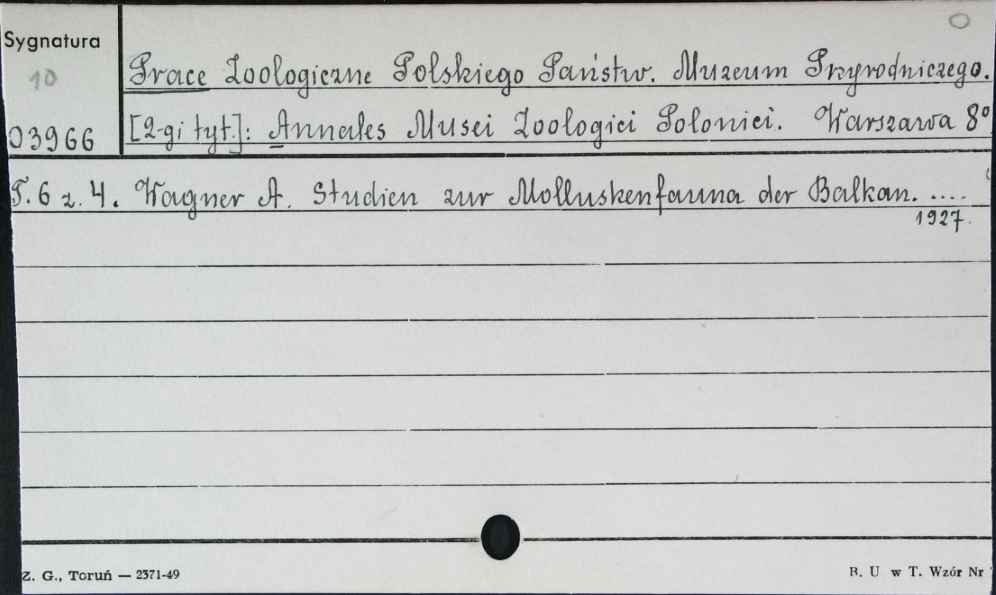 Sygnatura
10
03966
Prace Zoologiczne Polskiego Państw. Muzeum Przyrodniczego.
[2-gi tyt.]: Annales Musei Zoologici Polonici. Warszawa 8°
T. 6 z. 4. Wagner A. Studien zur Molluskenfauna der Balkan. ....
1927.
Z. G., Toruń — 2371-49
B. U w T. Wzór Nr